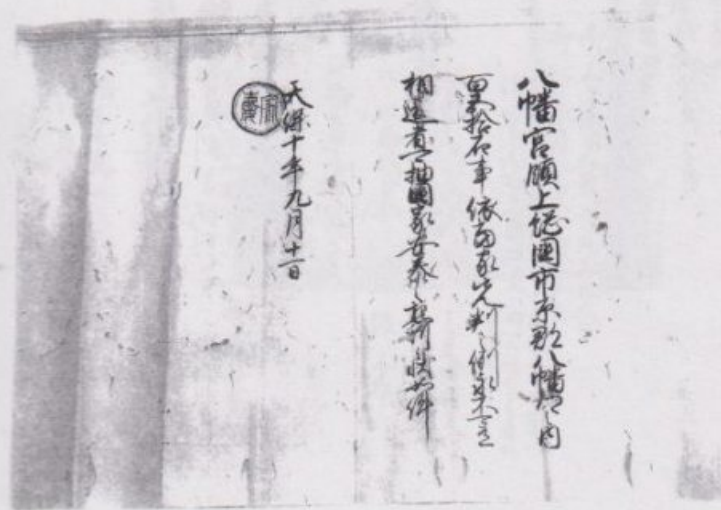 八幡宮領上総国市原郡八幡村之内
百五拾石事依当家先判之例永不可有
相違者可抽国家安泰之懇祈状如件
天保十年九月十一日
家慶